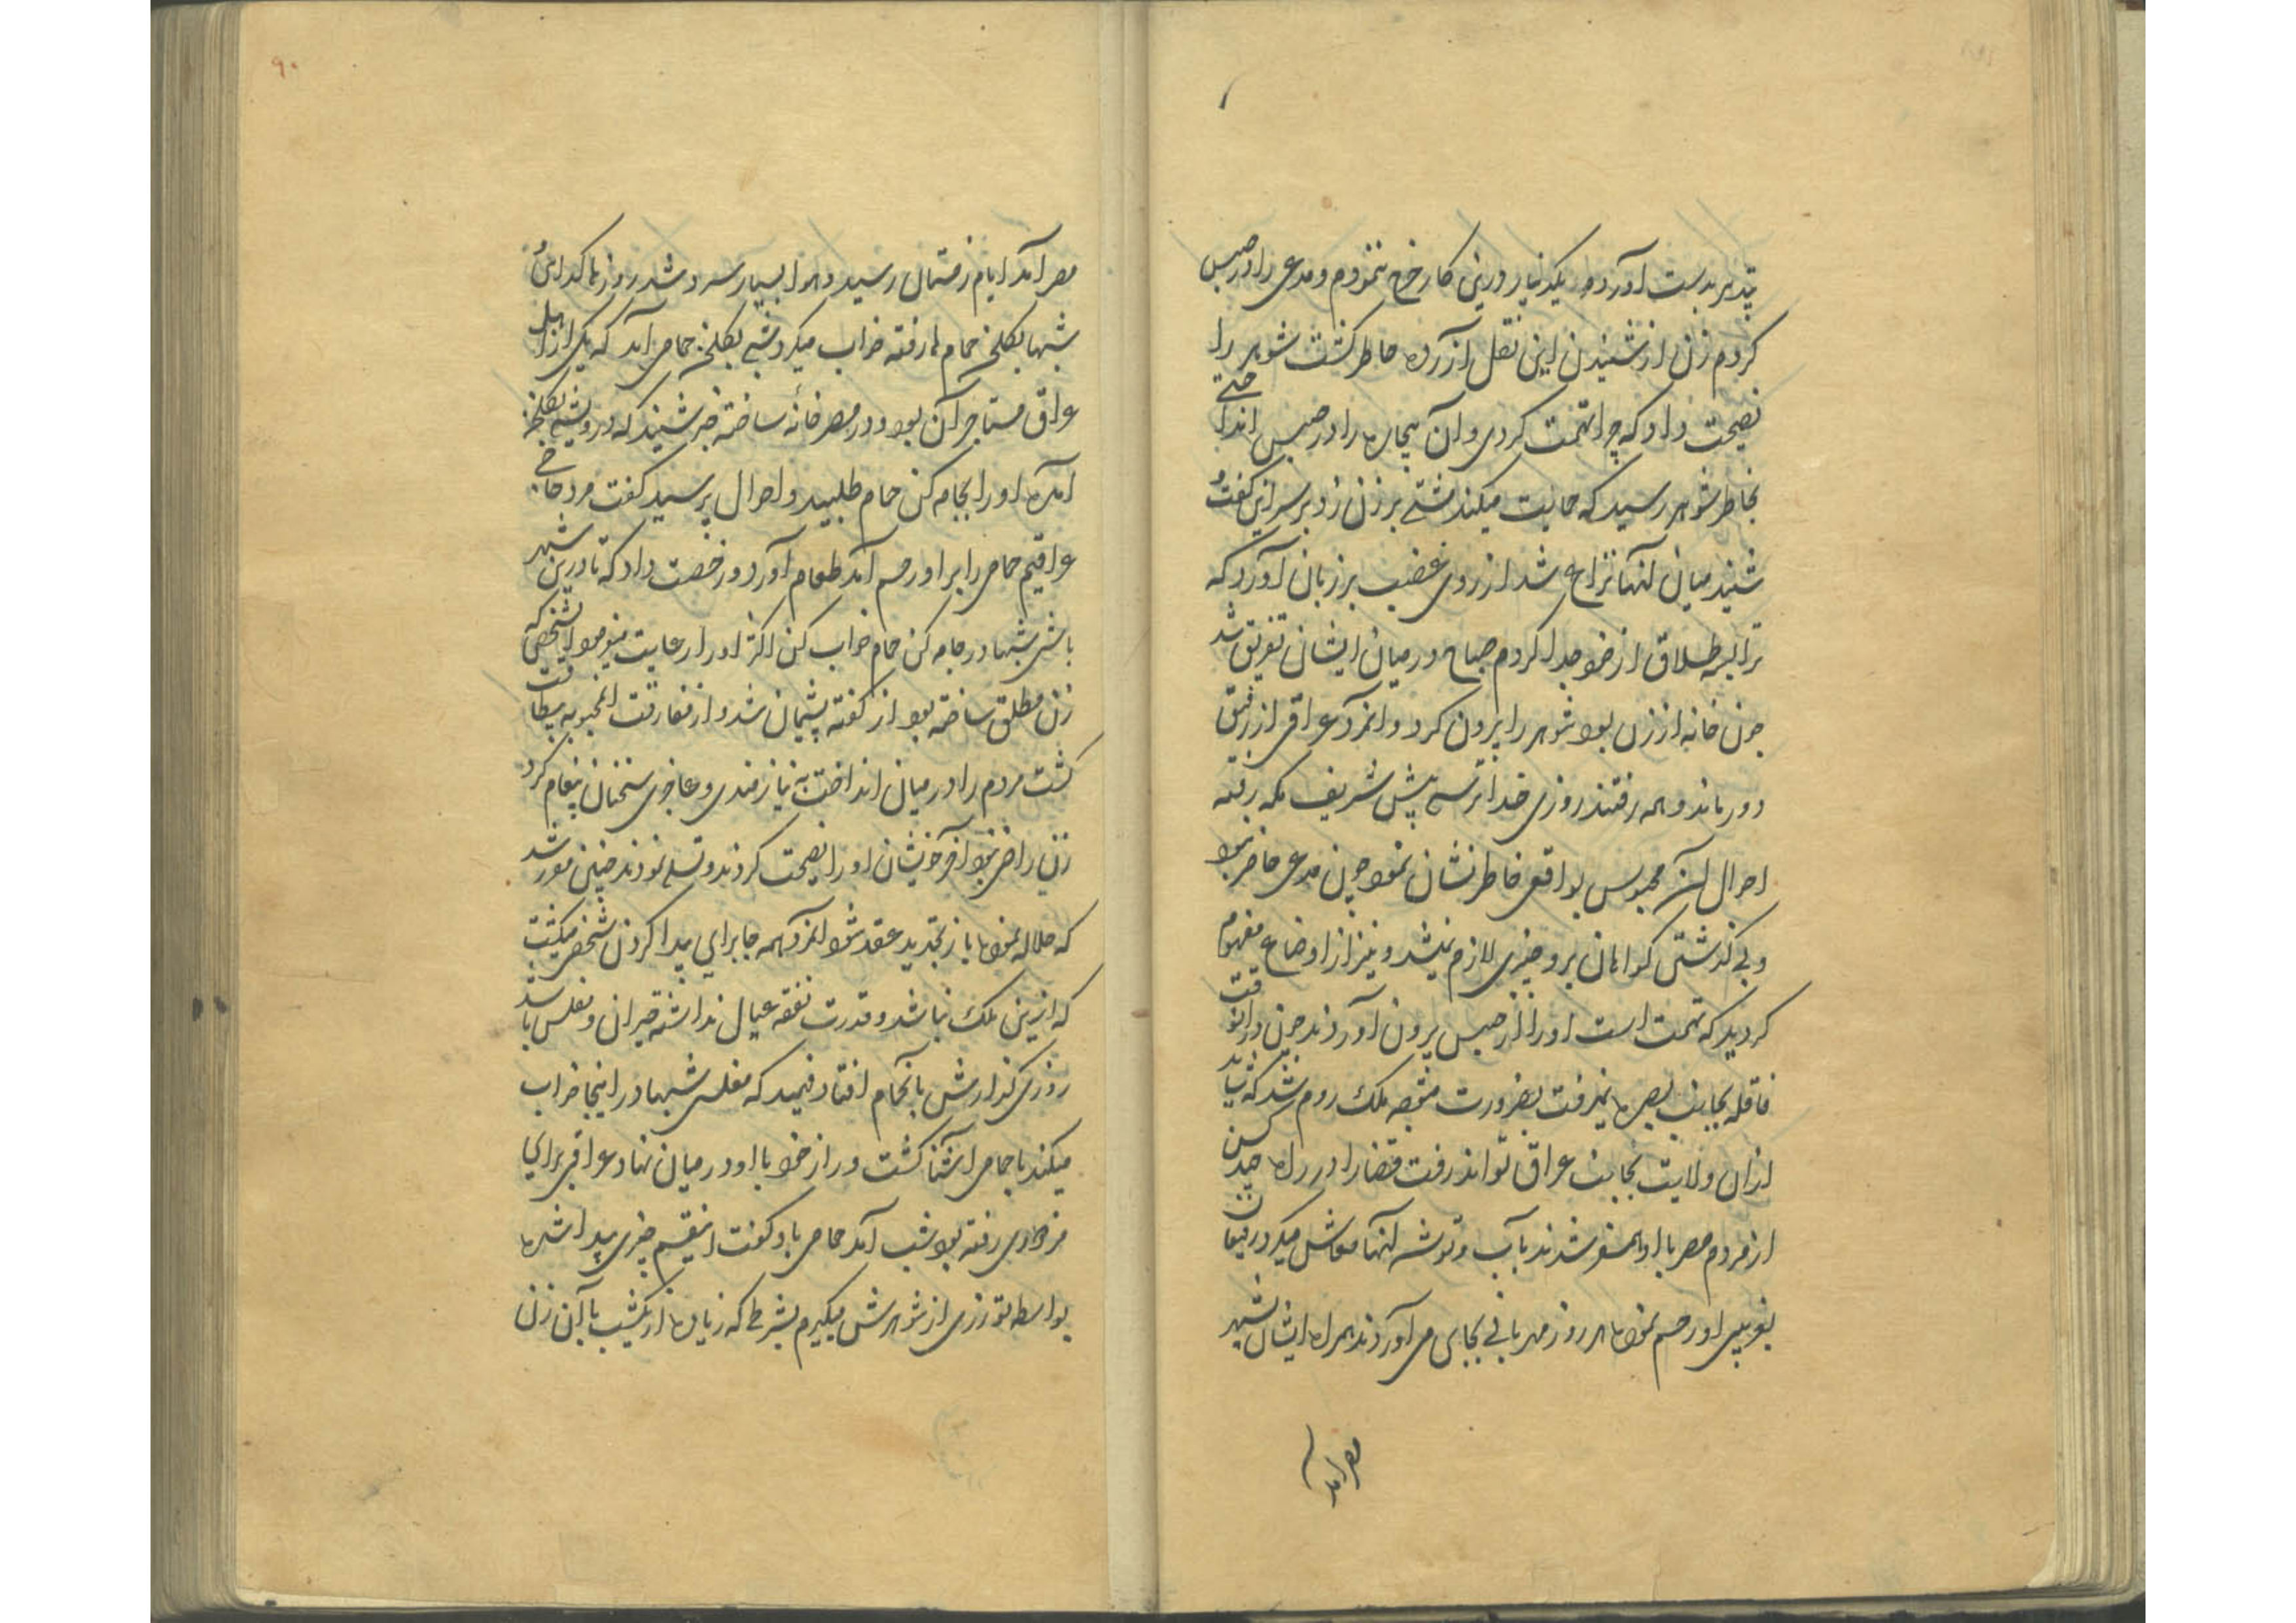 بتدبیر بدست آورده یکدینار درین کار خرج ننمودم و مدعی را در حبس
کردم زن از شنیدن این نقل آزرده خاطر گشت شوهر را
نصیحت داد که چرا تهمت کردی و آن بیچاره را در حبس انداختی
بخاطر شوهر رسید که حمایت میکند مشتی بر زن زد بر سر این گفت و
شنید میان آنها نزاع شد از روی غضب بر زبان آورد که
ترا بسه طلاق از خود جدا کردم صباح در میان ایشان تفریق شد
چون خانه از زن بود شوهر را بیرون کرد و آنمرد عراقی از رفیق
دور ماند و همه رفتند روزی خدا ترسی پیش شریف مکه رفته
احوال آن محبوس بواقعی خاطرنشان نمود چون مدعی حاضر نبود
و بی گذشتن گواهان برو چیزی لازم نمیشد و نیز از اوضاع مفهوم
گردید که تهمت است او را از حبس بیرون آوردند چون درانوقت
قافله بجانب بصره نمیرفت بضرورت متوجه ملک روم شد که شاید
ازان ولایت بجانب عراق تواند رفت قضارا در راه چند کس
از مردم مصر با او همسفر شدند بآب و توشه آنها معاش میکرد رفیقان
بغریبی او رحم نموده هر روز مهربانی بجای می آوردند همراه ایشان بشهر
مصر آمد
۹۰
مصر آمد ایام زمستان رسید و هوا بسیار سرد شد روزها گدایی و
شبها بگلخن حمام ها رفته خواب میکرد شبی بگلخن حمامی آمد که یکی از اهل
عراق مستاجر آن بود و در مصر خانه ساخته خبر شنید که درویشی بگلخن
آمده او را بجامه کن حمام طلبید و احوال پرسید گفت مرد حاجی
عراقیم حمامی را بر او رحم آمد طعام آورد و رخصت داد که تا درین شهر
باشی شبها در جامه کن حمام خواب کن اکثر او را رعایت مینمود شخصی که
زن مطلق ساخته بود از گفته پشیمان شد و از مفارقت آنمحبوبه بیطاقت
گشت مردم را در میان انداخت به نیازمندی و عاجزی سخنان پیغام کرد
زن راضی نبود آخر خویشان او را نصیحت کردند و تسلی نمودند چنین مقرر شد
که حلاله نموده باز تجدید عقد شود آنمرد همه جا برای پیدا کردن شخصی میگشت
که ازین ملک نباشد و قدرت نفقه عیال نداشته حیران و مفلس باشد
روزی گذارش بآنحمام افتاد فهمید که مفلسی شبها در اینجا خواب
میکند با حمامی آشنا گشت و راز خود با او در میان نهاد عراقی برای
مزدوری رفته بود شب آمد حمامی باو گفت ای چیزی پیدا شده
بواسطه تو زری از شوهرش میگیرم بشرطی که زیاده از یکشب با آن زن